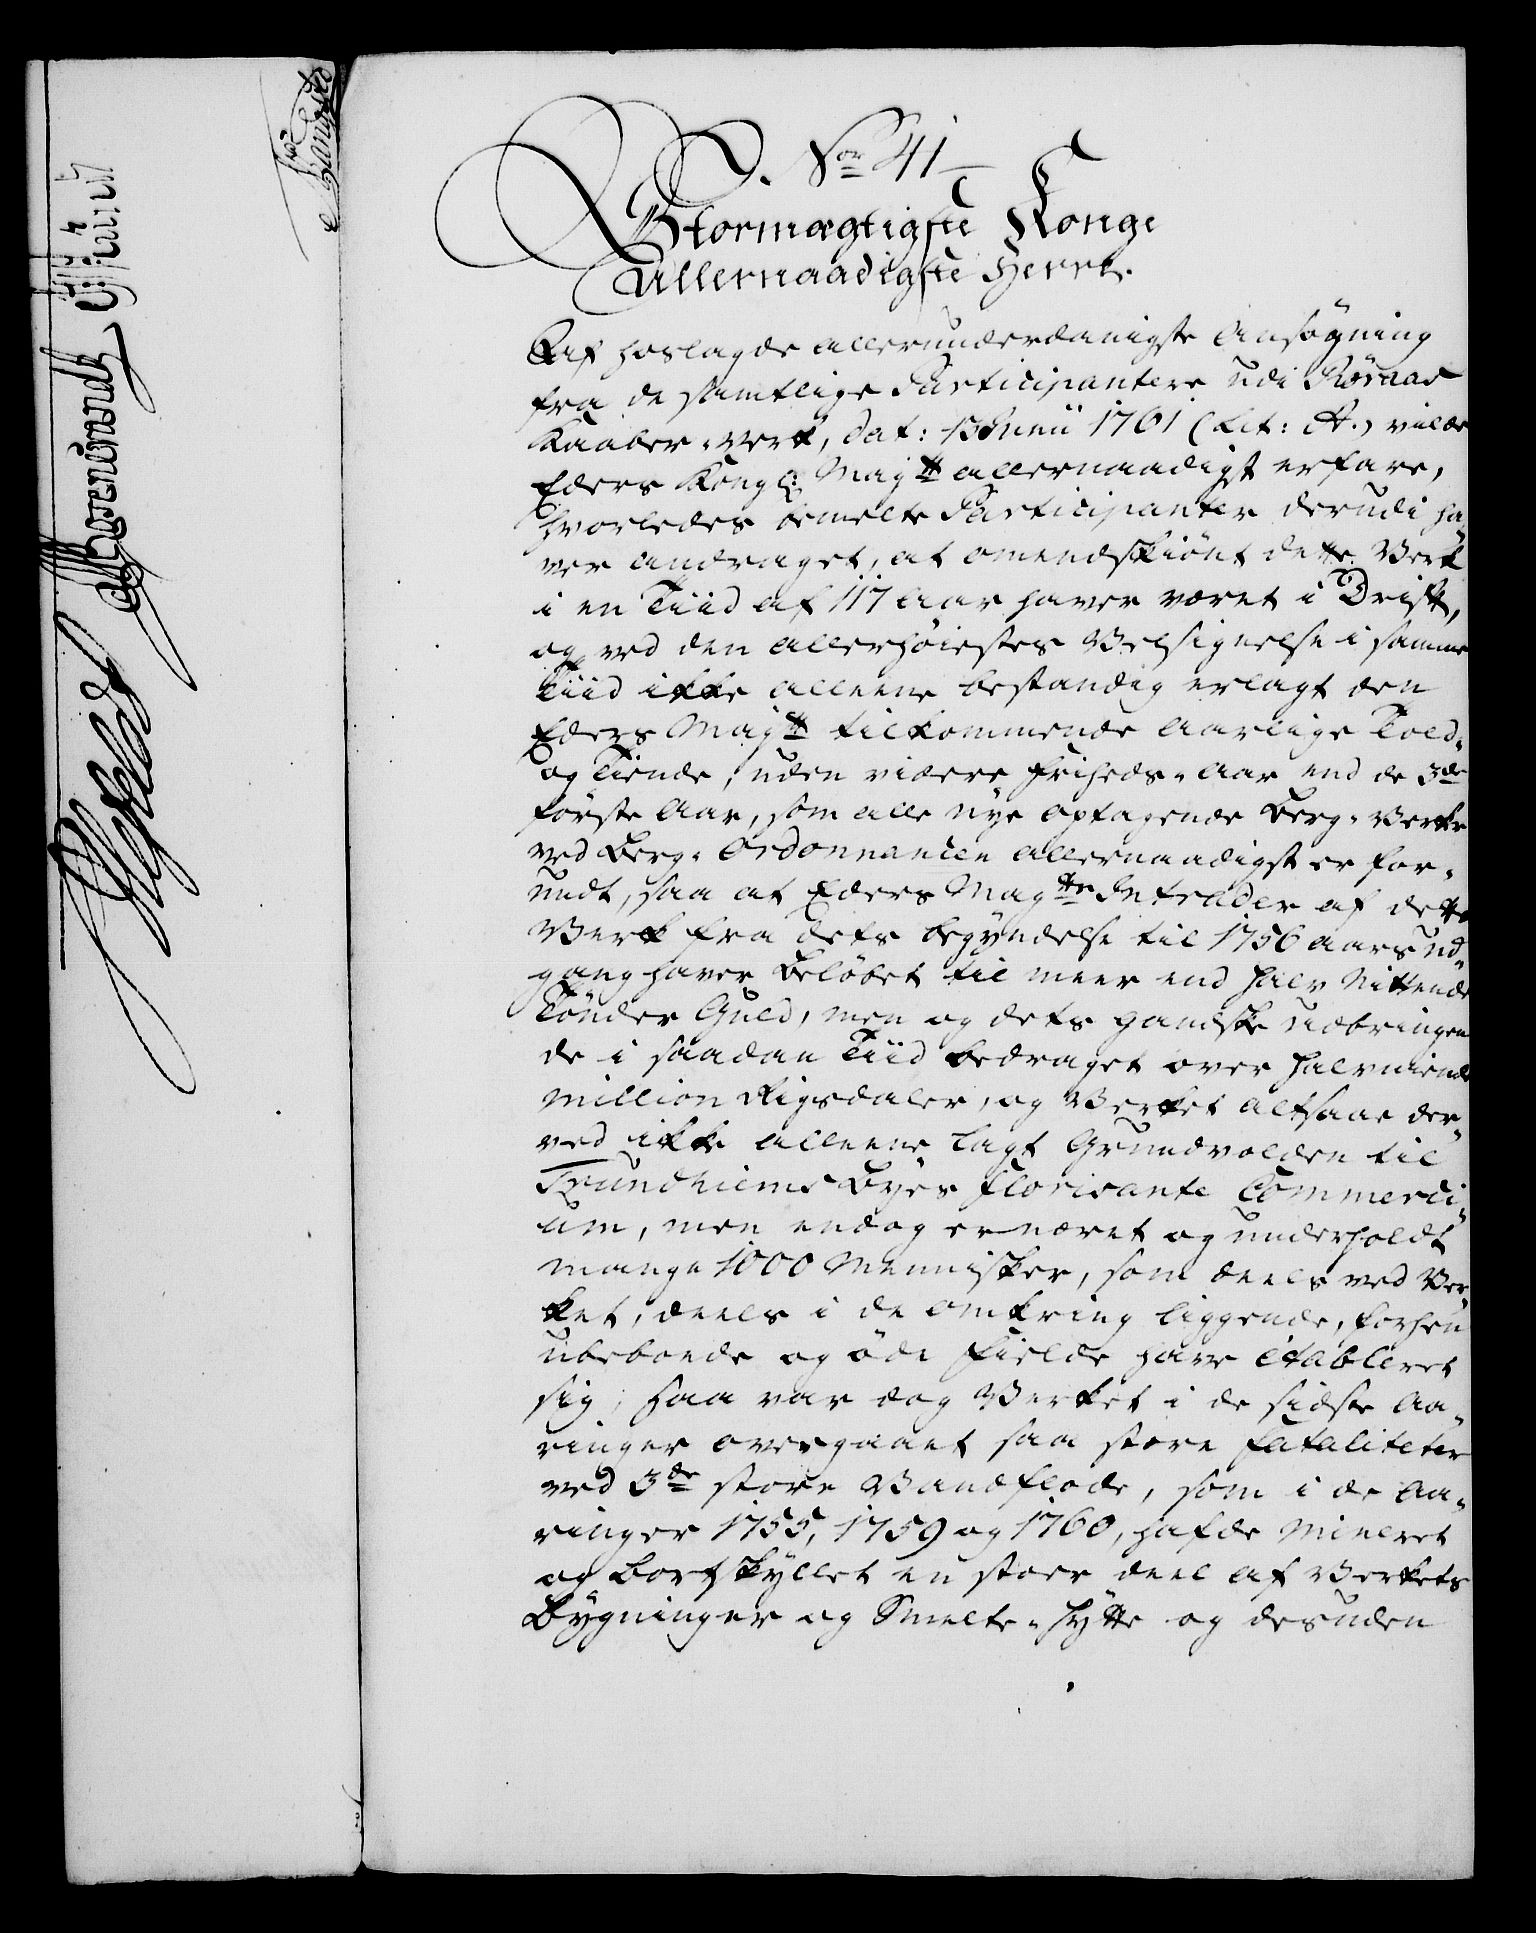 No 41
Stormægtigste Konge
Allernaadigste Herre.
Af hoslagde allerunderdanigste Ansøgning
fra de samtlige Participantere udi Röraas
Kaaber-Verk, dat: 13 Junii 1761 (Lit: A.) vilde
Eders Kongl: Mayt allernaadigst erfare,
hvorledes bemelte Participanter derudi ha-
ver andraget, at omendskiönt dette Verk
i en Tiid af 117 Aar haver været i Drift,
og ved den Allerhöiestes Velsignelse i samme
Tiid ikke alleene bestandig erlagt den
Eders Mayt tilkommende Aarlige Told-
og Tiende, uden videre Friheds-Aar end de 3de
første Aar, som alle nye optagende Berg-Verker
ved Berg-Ordonnancen allernaadigst er for-
undt, saa at Eders Mayts Intrader af dette
Verk fra dets begyndelse til 1756 aars ud-
gang haver beløbet til meer end halv Nittende
Tönder Guld, men og dets gandske udbringen-
de i saadan Tiid bedraget over halvniende
million Rigsdaler, og Verket altsaa der-
ved ikke alleene lagt Grundvolden til
Trundhiems Byes florisante Commerci-
um, men endog ernæret og underholdt
mange 1000 Mennisker, som deels ved Ver-
ket, deels i de omkring liggende, forhen
ubeboede og øde Fielde have etableret
sig; saa var dog Verket i de sidste Aa-
ringer overgaaet saa store fataliteter
ved 3de store Vandflode, som i de Aa-
ringer 1755, 1759 og 1760, hafde mineret
og bortskyllet en stoer deel af Verkets
Bygninger og Smelte-Hytte og desuden